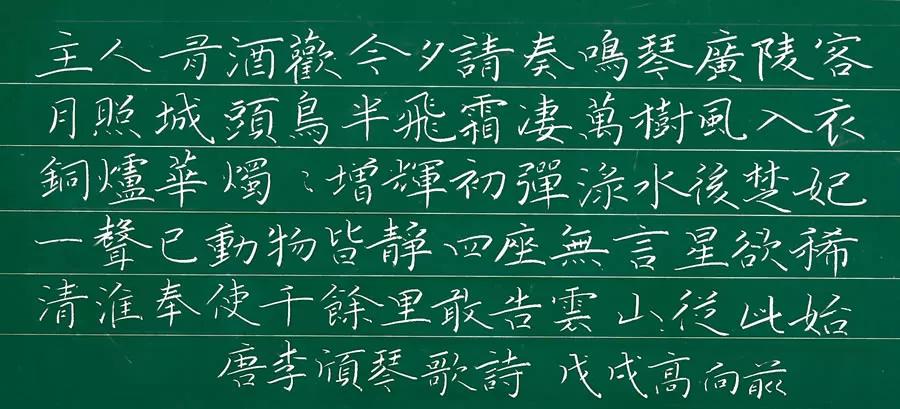 主人有酒歡今夕請奏鳴琴廣陵客
月照城頭鳥半飛霜凄萬樹風入衣
銅爐華燭〻增輝初彈淥水後楚妃
一聲已動物皆靜四座無言星欲稀
清淮奉使千餘里敢告雲山從此始
唐李頎琴歌詩 戊戌高向前